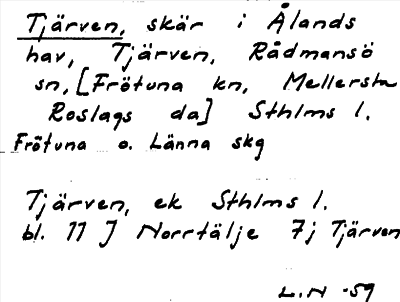 Tjärven, skär i Ålands
hav, Tjärven, Rådmansö
sn, [Frötuna kn, Mellersta
Roslags da] Sthlms l.
Frötuna o. Länna skg
Tjärven, ek Sthlms l.
bl. 11 J Norrtälje 7j Tjärven
L.N -59